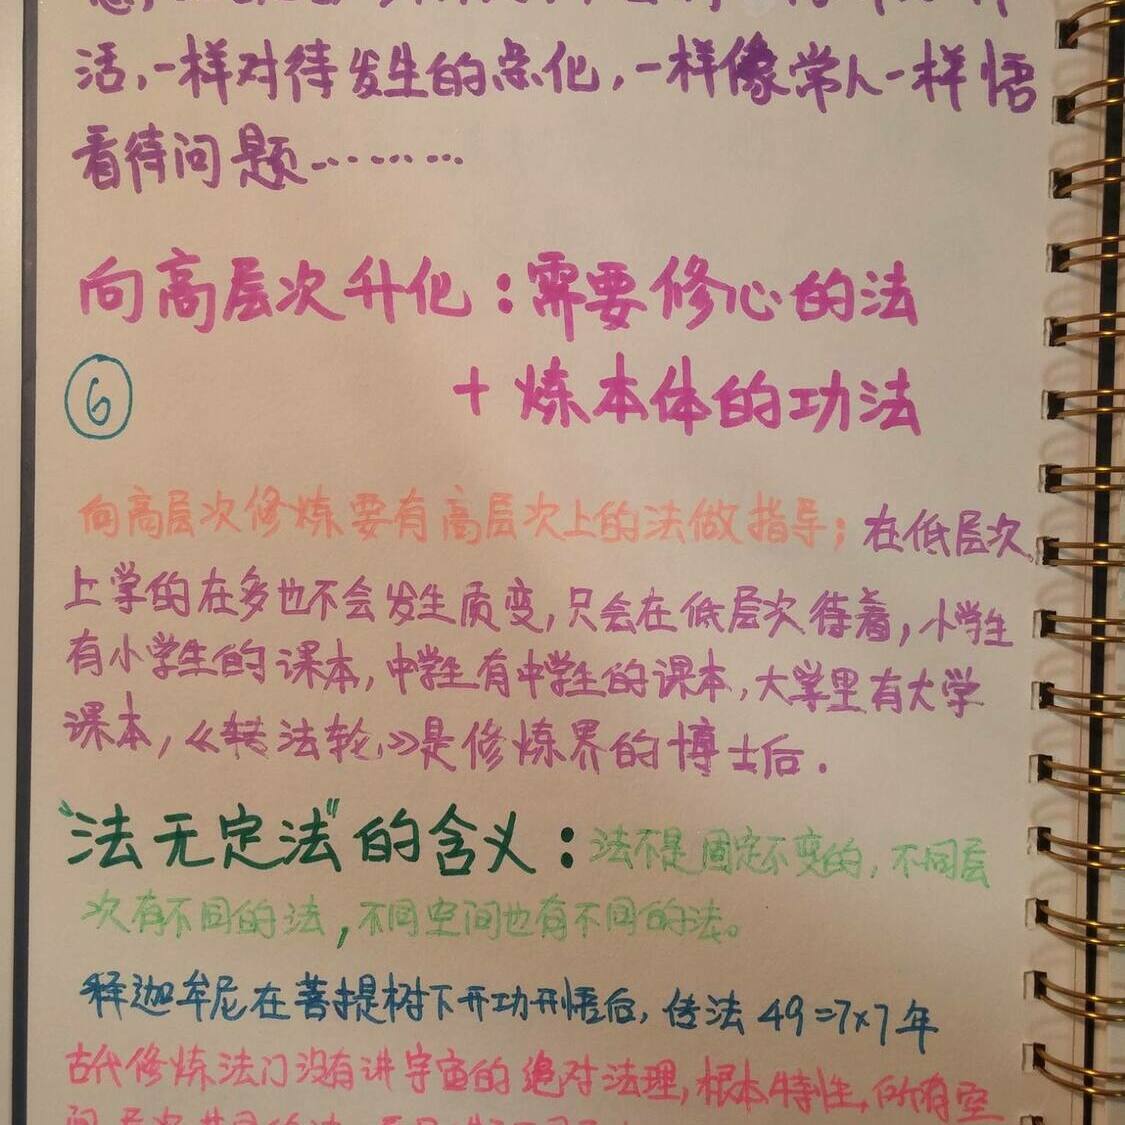 活，一样对待发生的点化，一样像常人一样悟
看待问题………
向高层次升化：需要修心的法
⑥ + 炼本体的功法
向高层次修炼要有高层次上的法做指导；在低层次
上学的在多也不会发生质变，只会在低层次待着，小学生
有小学生的课本，中学生有中学生的课本，大学里有大学
课本，《转法轮》是修炼界的博士后.
“法无定法”的含义：法不是固定不变的，不同层
次有不同的法，不同空间也有不同的法。
释迦牟尼在菩提树下开功开悟后，传法 49=7×7年
古代修炼法门没有讲宇宙的绝对法理，根本特性，所有空